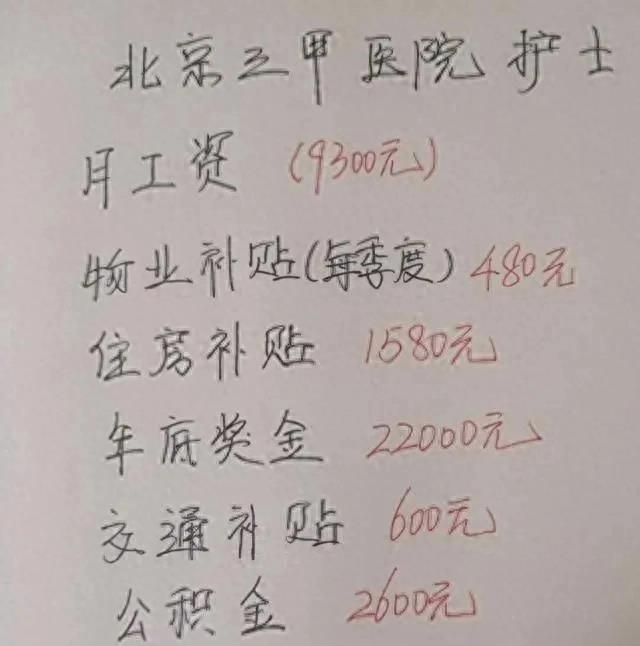 北京三甲医院护士
月工资 (9300元)
物业补贴(每季度) 480元
住房补贴 1580元
年底奖金 22000元
交通补贴 600元
公积金 2600元